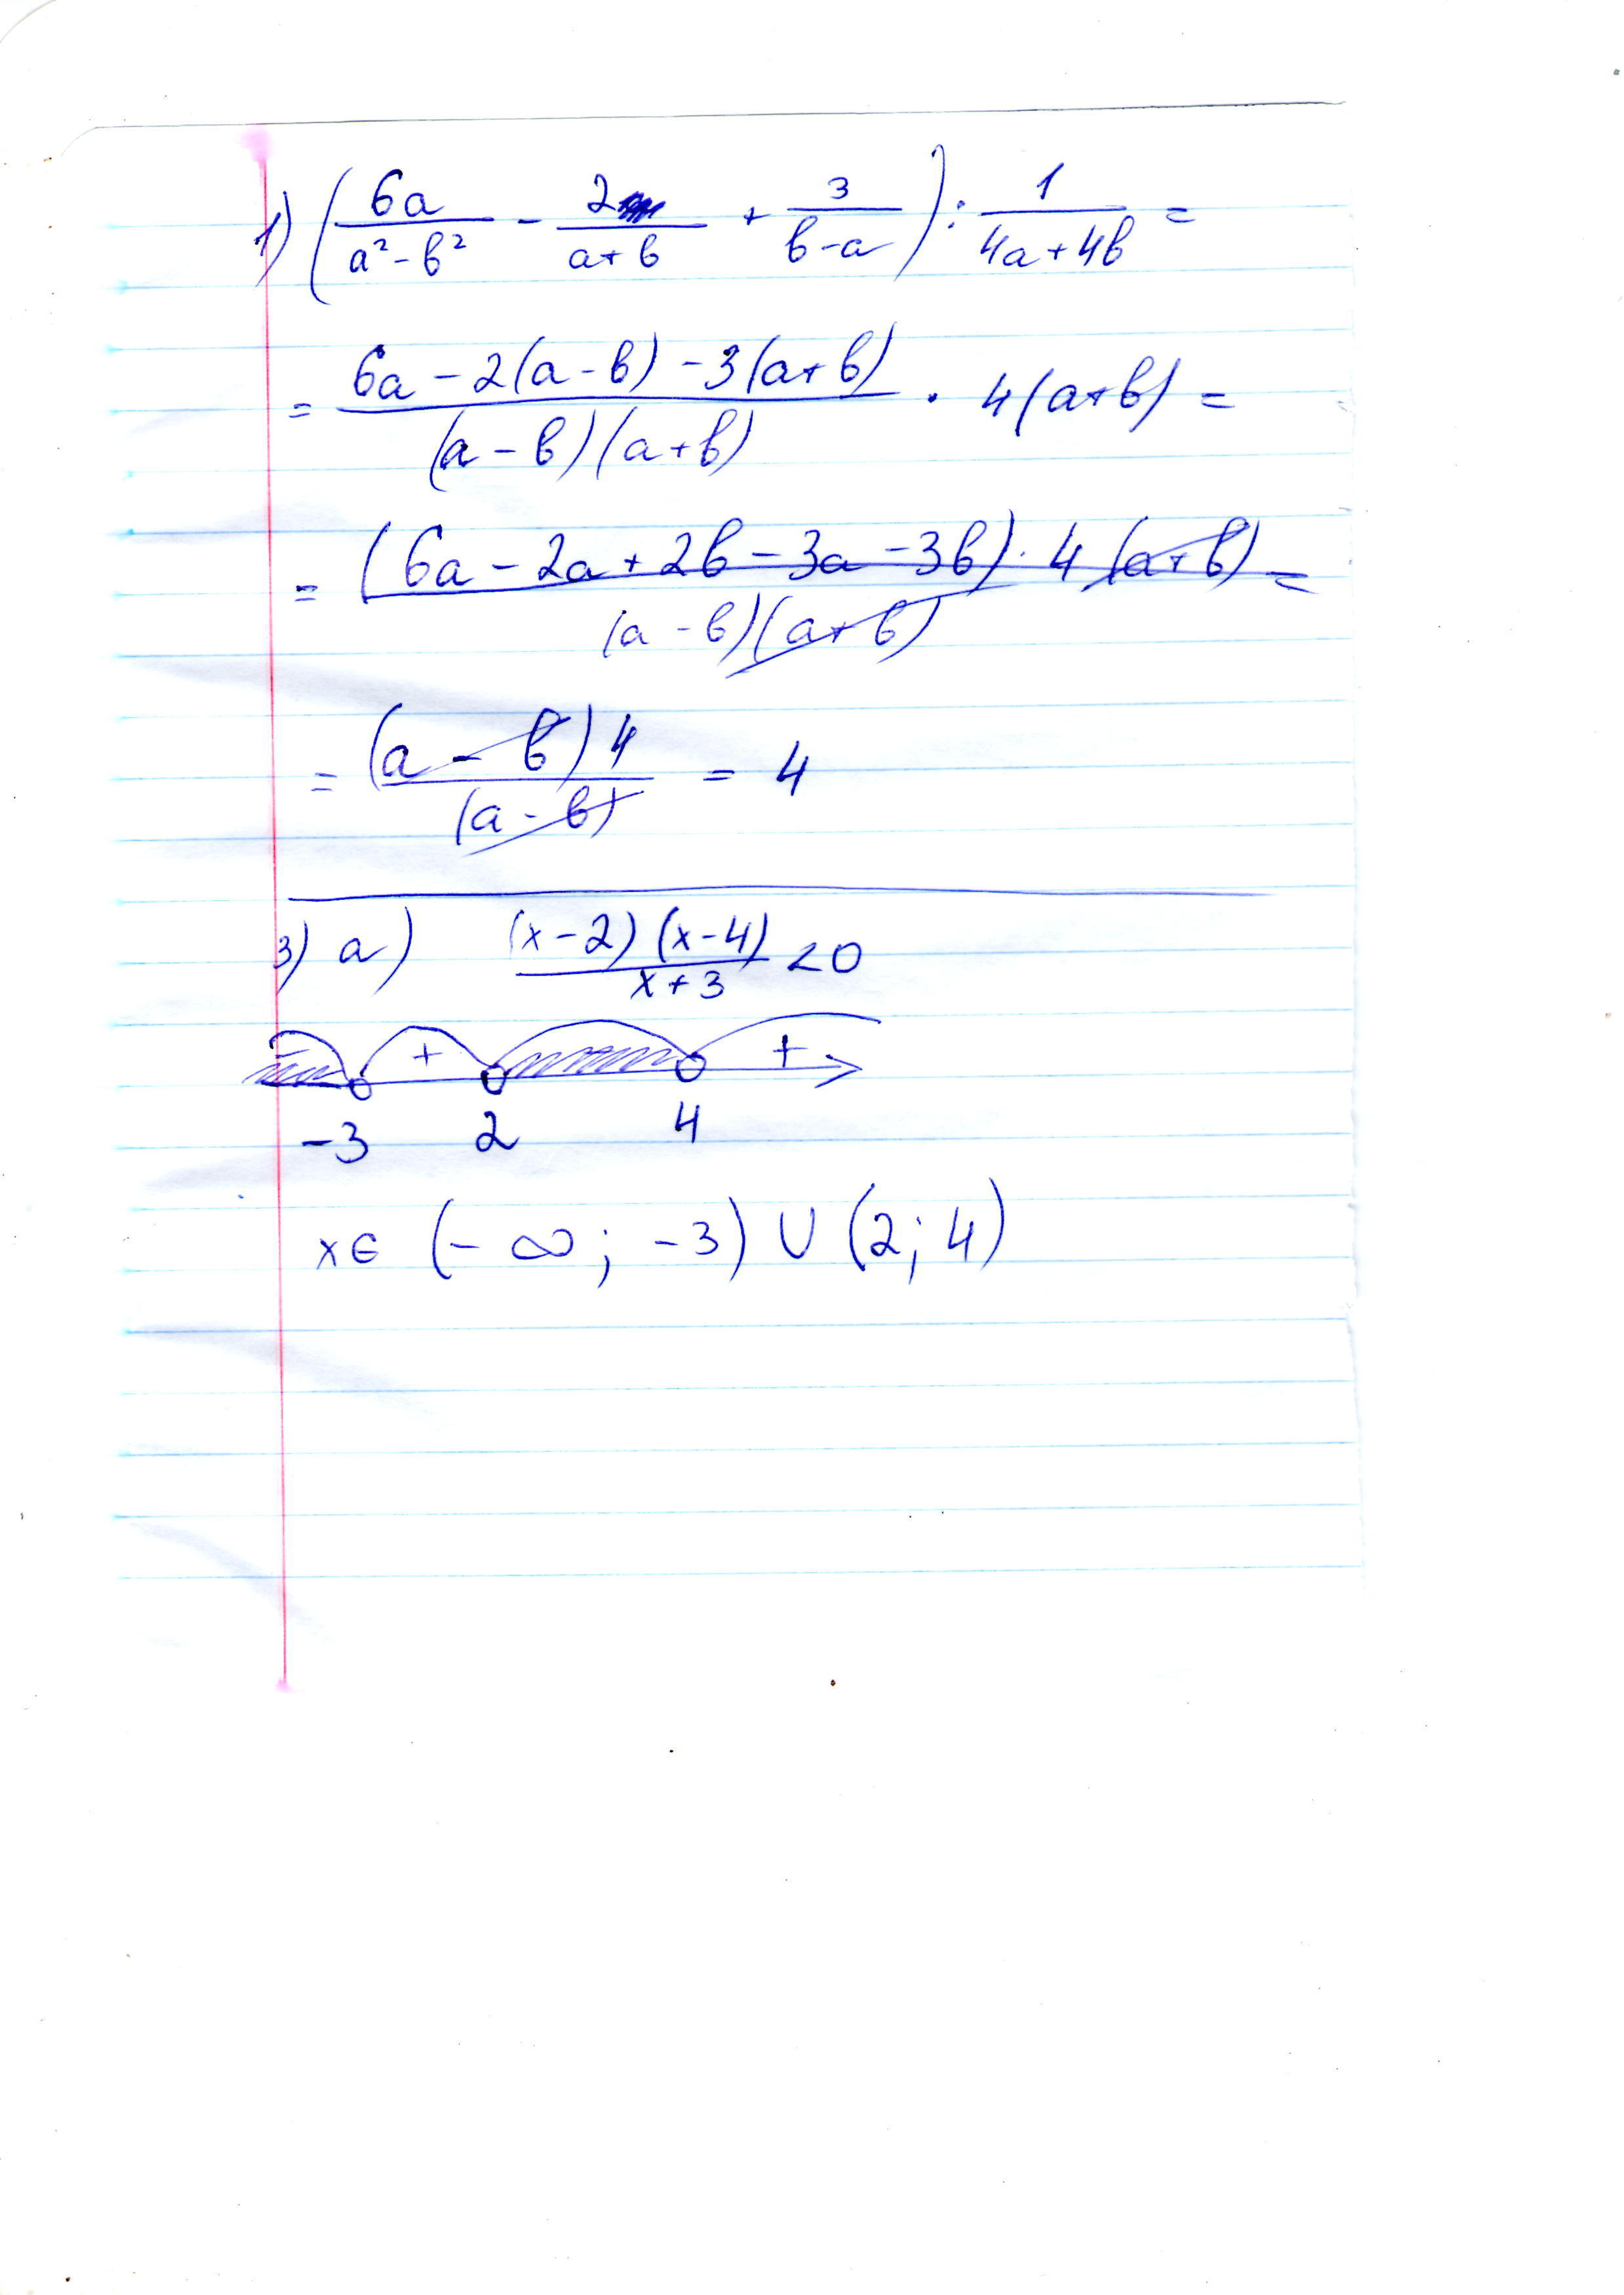 1) (6a/(a²-b²) - 2/(a+b) + 3/(b-a)) : 1/(4a+4b) =
= (6a-2(a-b)-3(a+b))/((a-b)(a+b)) · 4(a+b) =
= ((6a-2a+2b-3a-3b)·4(a+b))/((a-b)(a+b)) =
= ((a-b)4)/((a-b)) = 4
3) a) ((x-2)(x-4))/(x+3) <0
- + +
-3 2 4
x∈ (-∞; -3) ∪ (2; 4)